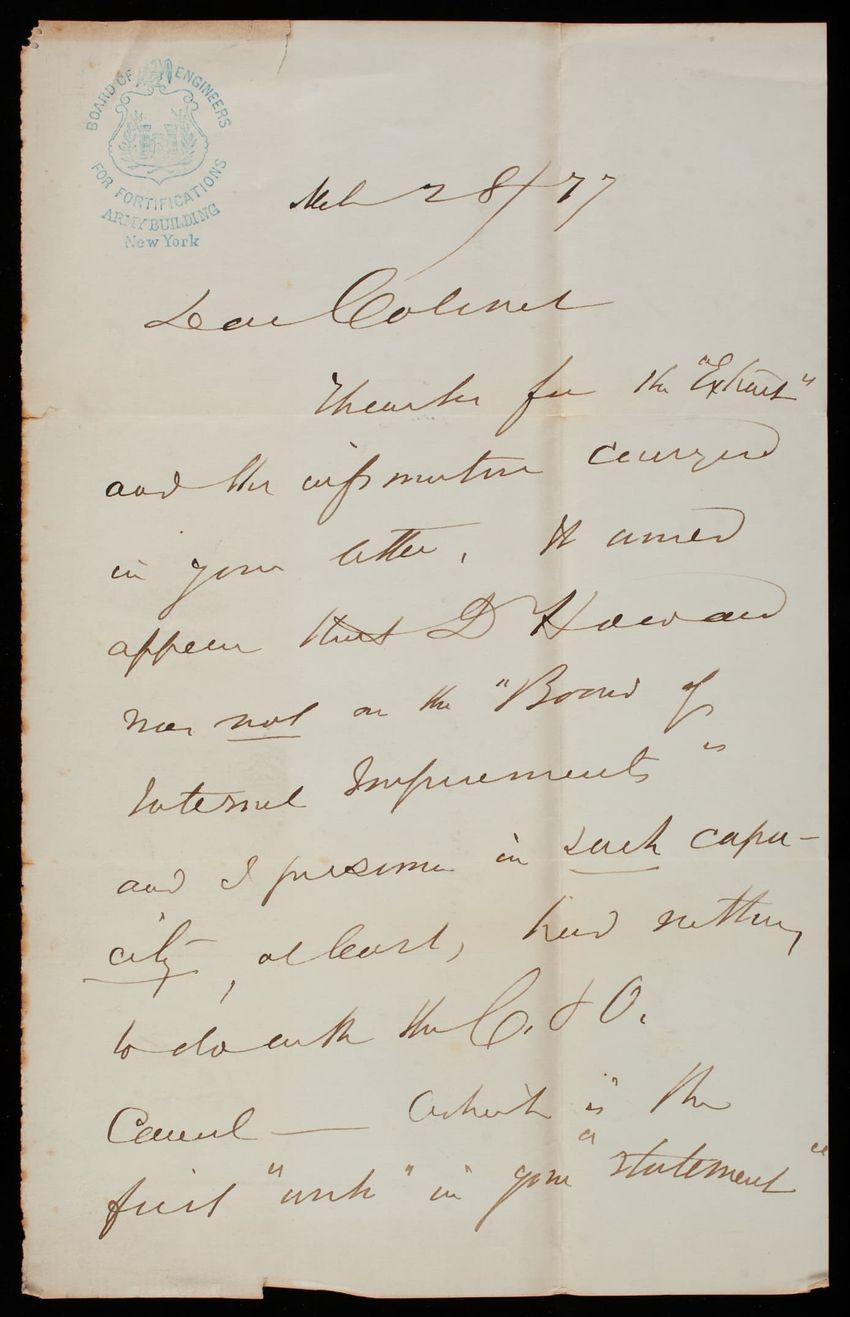 BOARD OF ENGINEERS
FOR FORTIFICATIONS
ARMY BUILDING
New York
Mch 28/77
Dear Colonel
Thanks for the "Extract"
and the information conveyed
in your letter. It would
appear that Dr Howard
was not on the "Board of
Internal Improvements"
and I presume in such capa-
city, at least, had nothing
to do with the C. & O.
Canal — which is the
first "work" in your "statement"